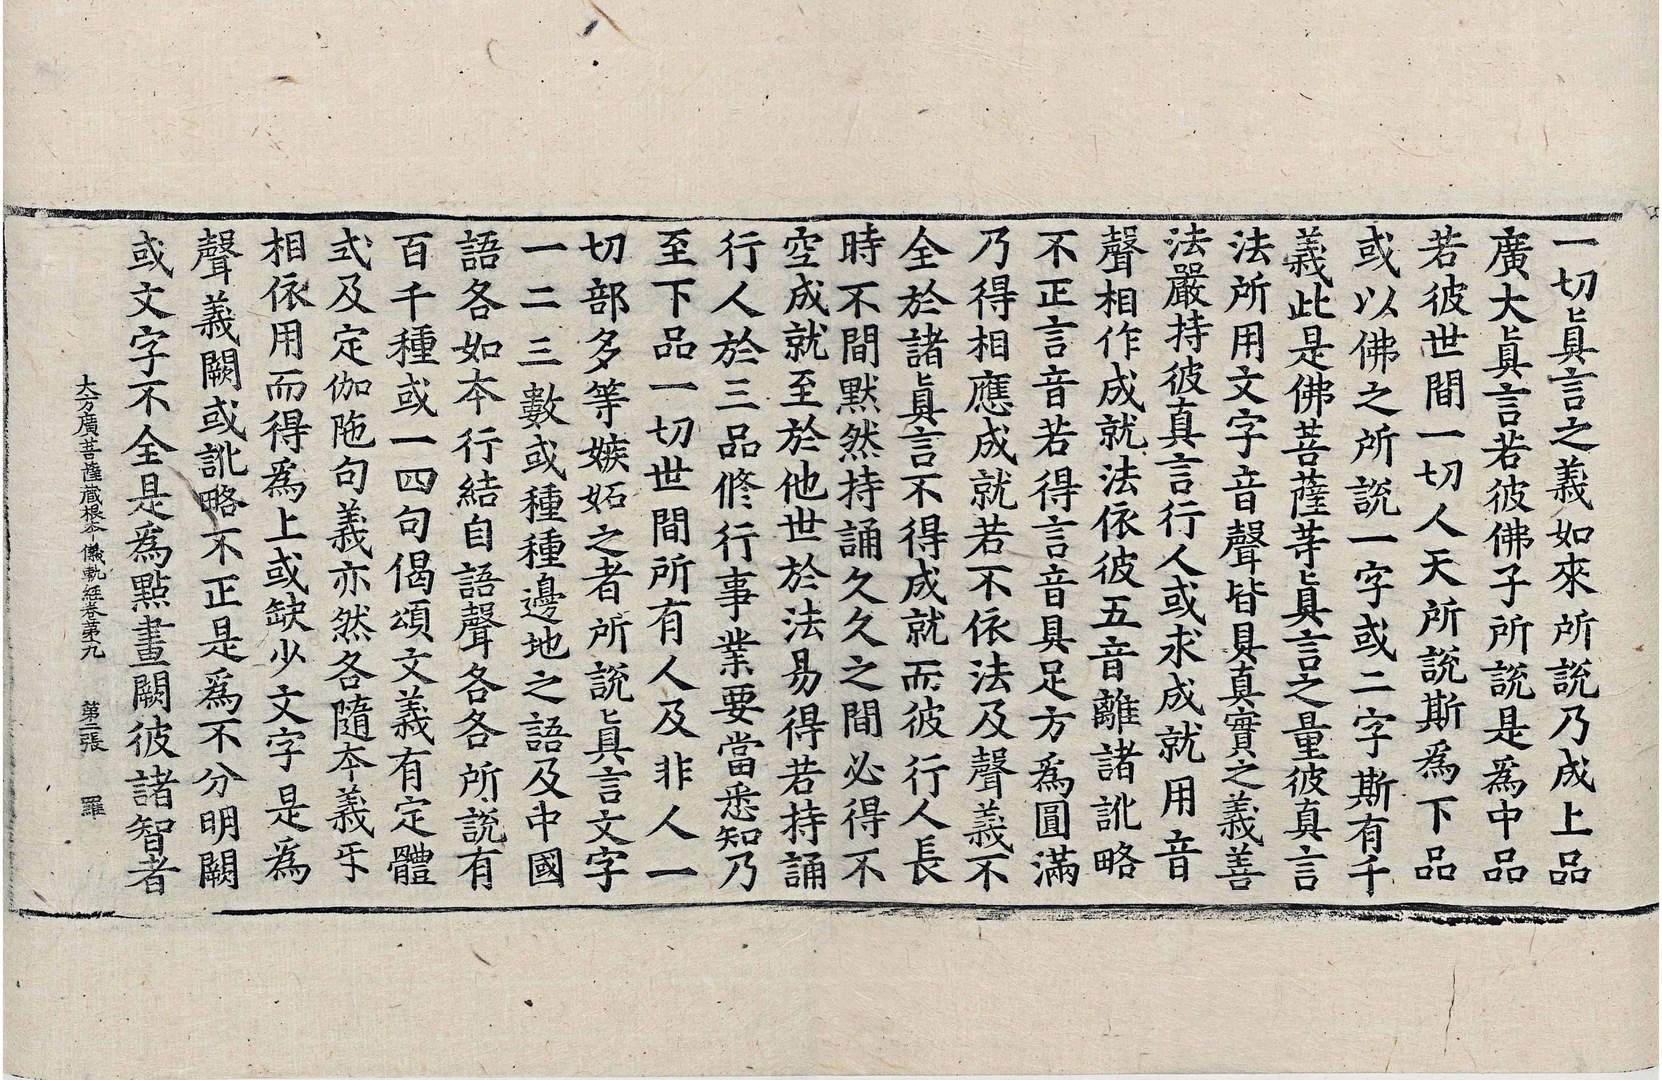 一切眞言之義如來所說乃成上品
廣大眞言若彼佛子所說是爲中品
若彼世間一切人天所說斯爲下品
或以佛之所說一字或二字斯有千
義此是佛菩薩等眞言之量彼真言
法所用文字音聲皆具真實之義善
法嚴持彼真言行人或求成就用音
聲相作成就法依彼五音離諸訛略
不正言音若得言音具足方爲圓滿
乃得相應成就若不依法及聲義不
全於諸眞言不得成就而彼行人長
時不間默然持誦久久之間必得不
空成就至於他世於法易得若持誦
行人於三品修行事業要當悉知乃
至下品一切世間所有人及非人一
切部多等嫉妬之者所說眞言文字
一二三數或種種邊地之語及中國
語各如本行結自語聲各各所說有
百千種或一四句偈頌文義有定體
式及定伽陁句義亦然各隨本義乎
相依用而得爲上或缺少文字是爲
聲義闕或訛略不正是爲不分明闕
或文字不全是爲點畫闕彼諸智者
大方廣菩薩藏根本儀軌經卷第九 第二張 羅